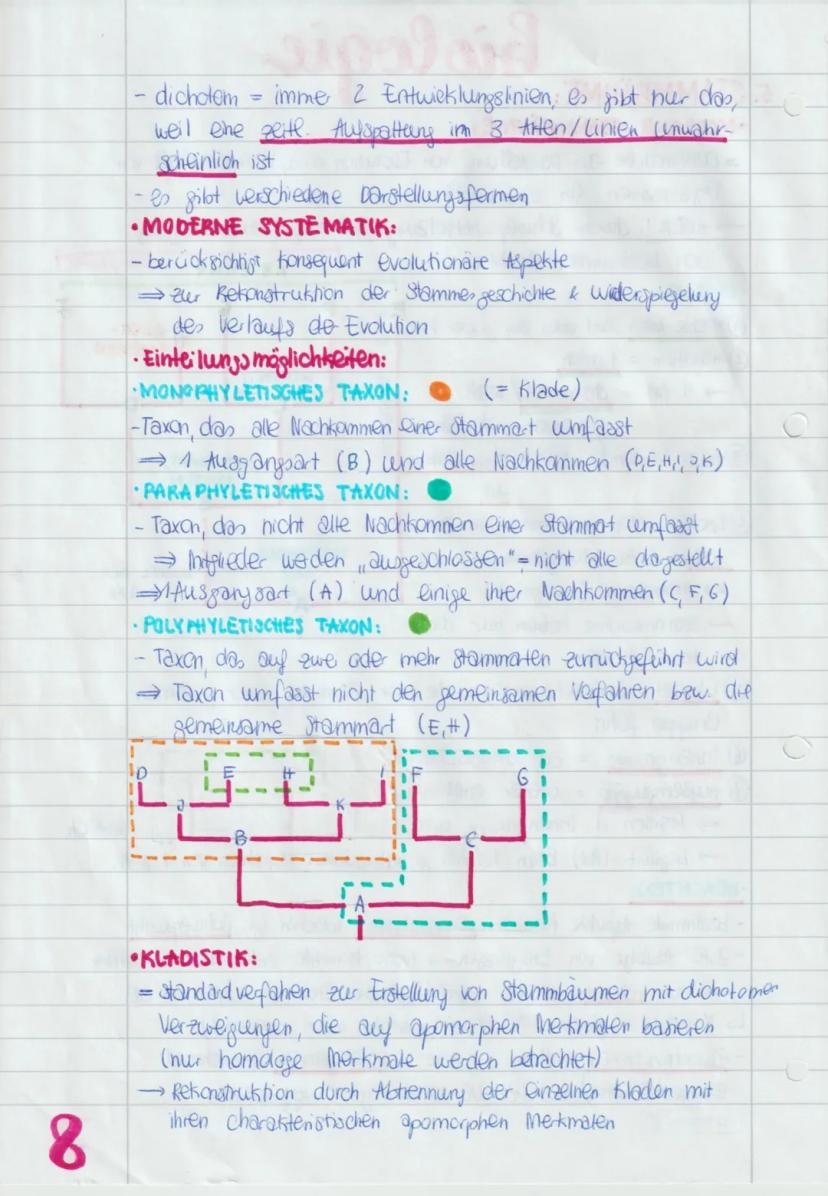 - dichotom = immer 2 Entwicklungslinien, es gibt nur das,
weil eine zeitl. Aufspaltung im 3 Arten/Linien unwahr-
scheinlich ist
- es gibt verschiedene Darstellungsformen
• MODERNE SYSTEMATIK:
- berücksichtigt konsequent evolutionäre Aspekte
⇒ zur Rekonstruktion der Stammesgeschichte & Widerspiegelung
des Verlaufs de Evolution
• Einteilungsmöglichkeiten:
• MONOPHYLETISCHES TAXON: (= Klade)
- Taxon, das alle Nachkommen einer Stammart umfasst
⇒ 1 Ausgangsart (B) und alle Nachkommen (D,E,H,I,J,K)
• PARAPHYLETISCHES TAXON:
- Taxon, das nicht alle Nachkommen einer Stammart umfasst
⇒ Mitglieder werden „ausgeschlossen" = nicht alle dargestellt
⇒ 1 Ausgangsart (A) und einige ihrer Nachkommen (C, F, G)
• POLYPHYLETISCHES TAXON:
- Taxon, das auf zwei oder mehr Stammarten zurückgeführt wird
⇒ Taxon umfasst nicht den gemeinsamen Vorfahren bzw. die
gemeinsame Stammart (E,H)
D E H I F G
J K
B C
A
• KLADISTIK:
= Standardverfahren zur Erstellung von Stammbäumen mit dichotomer
Verzweigungen, die auf apomorphen Merkmalen basieren
(nur homologe Merkmale werden betrachtet)
→ Rekonstruktion durch Abtrennung der einzelnen Kladen mit
ihren charakteristischen apomorphen Merkmalen
8